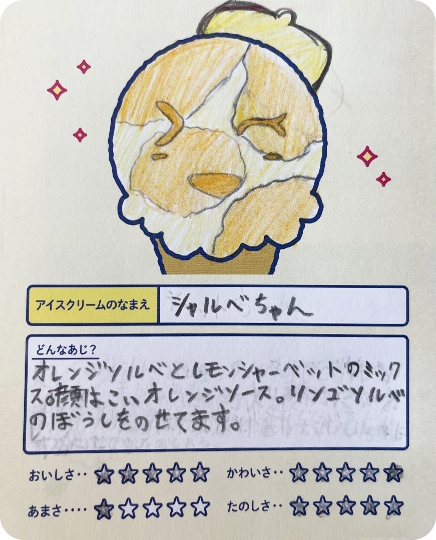 アイスクリームのなまえ シャルベちゃん
どんなあじ?
オレンジソルベとレモンシャーベットのミック
ス。顔はこいオレンジソース。リンゴソルベ
のぼうしをのせてます。
おいしさ‥ ★★★★★ かわいさ‥ ★★★★★
あまさ‥‥ ★☆☆☆☆ たのしさ‥ ★★★★★